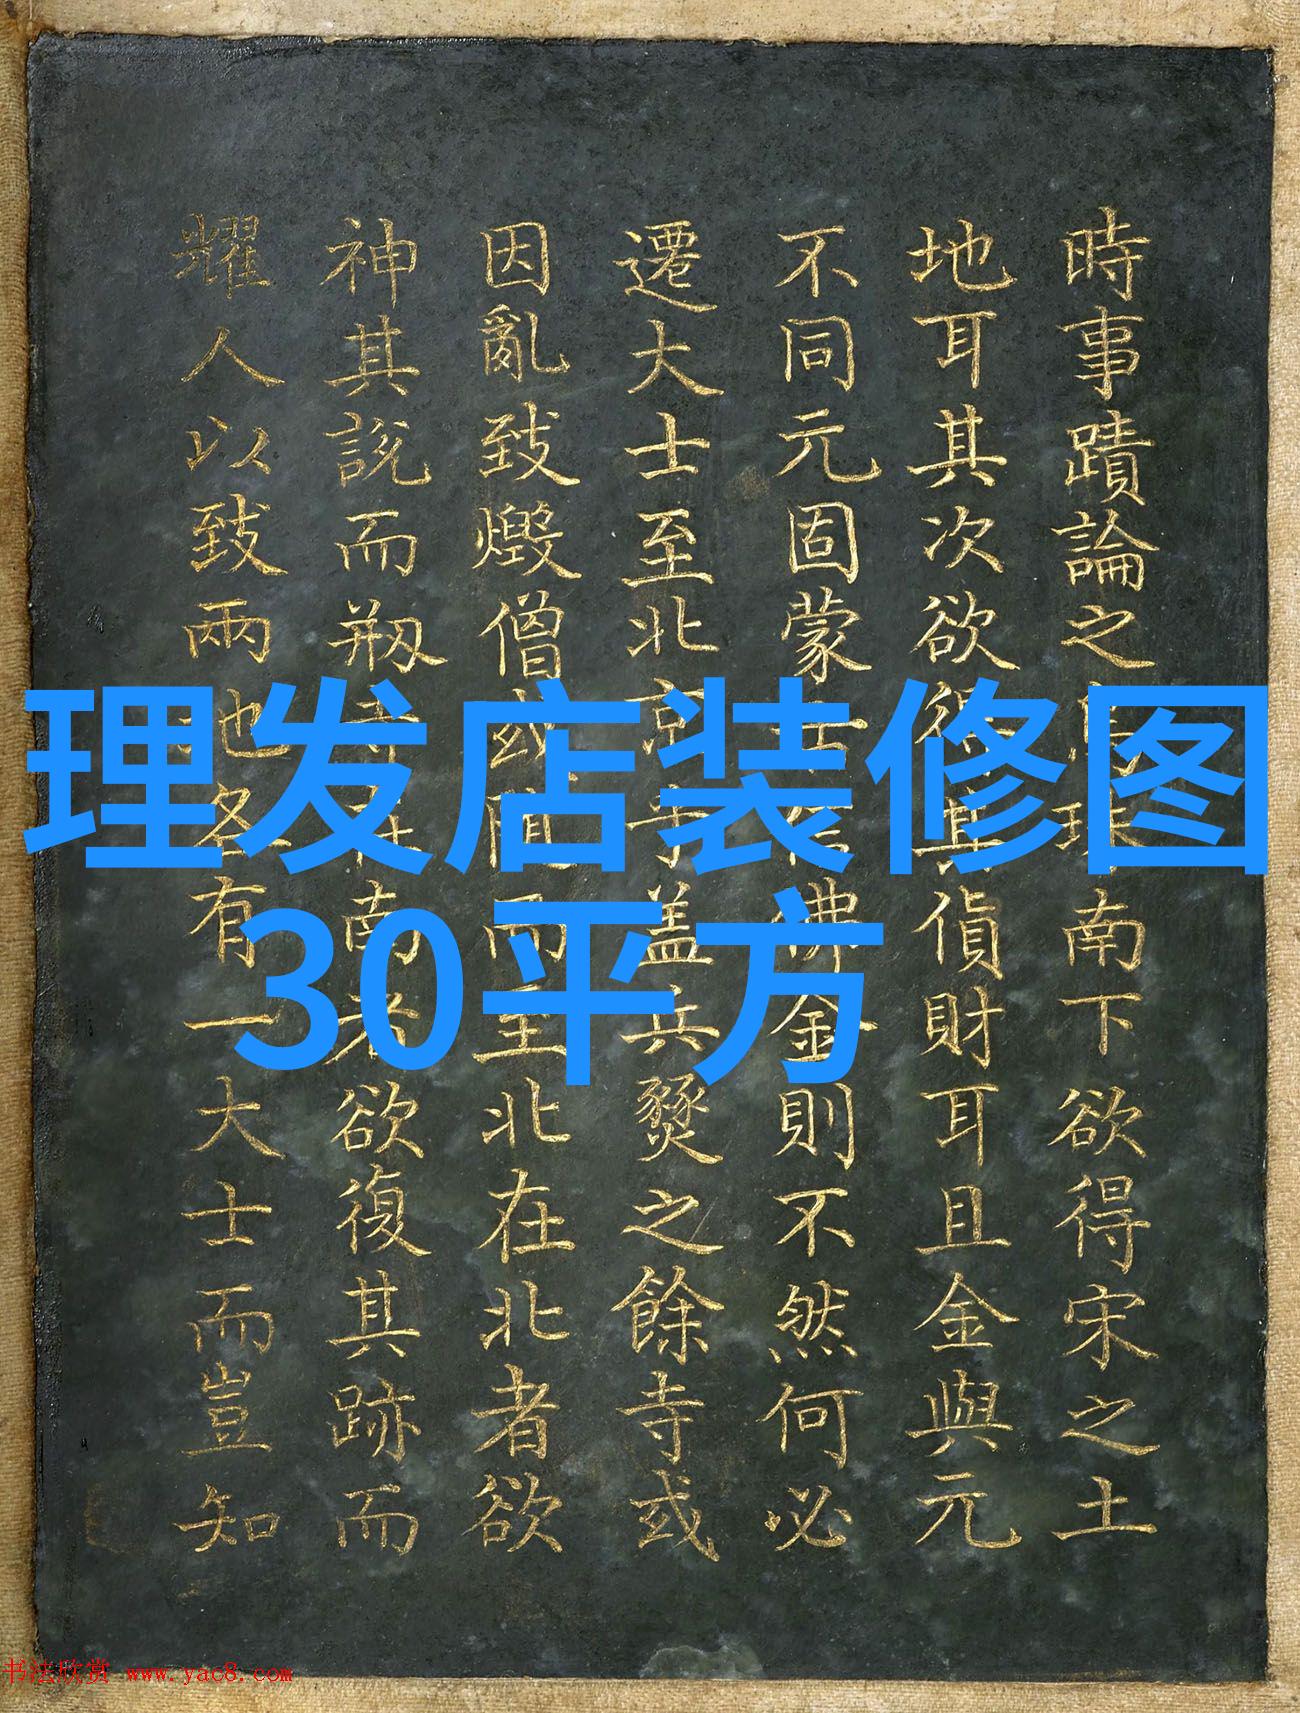 時事蹟論之南下欲得宋之土
地耳其次欲得其貨財耳且金與元
不同元固蒙信佛金則不然何必
遷大士至北京乎盖兵燹之餘寺或
因亂致燬僧或間而至北在北者欲
神其說而剏寺在南者欲復其跡而
耀人以致兩地各有一大士而豈知
理发店装修图
30平方
书法欣赏 www.yac8.com